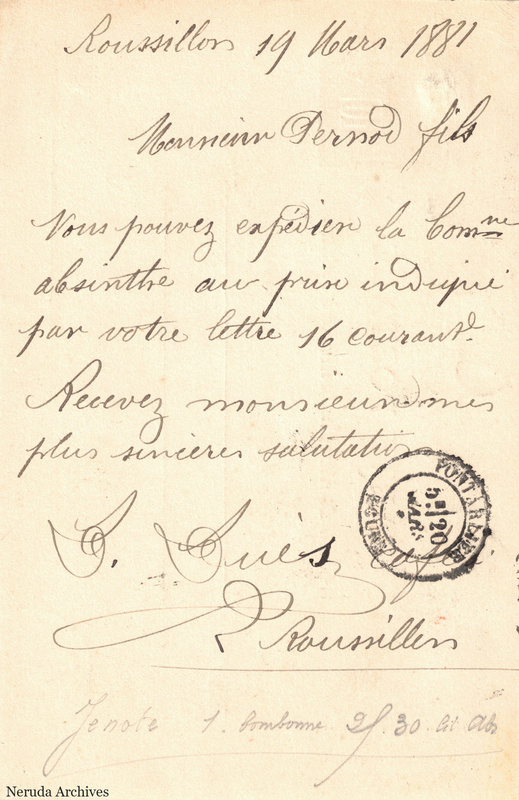 Roussillon 19 Mars 1881
Monsieur Pernod fils
Vous pouvez expédier la Bom^ne
absinthe au prix indiqué
par votre lettre 16 courant.
Recevez monsieur mes
plus sincères salutations
Roussillon
PONTARLIER
DOUBS
5E
20
MARS
Je note 1. bombonne 25/30 lit abs
Neruda Archives